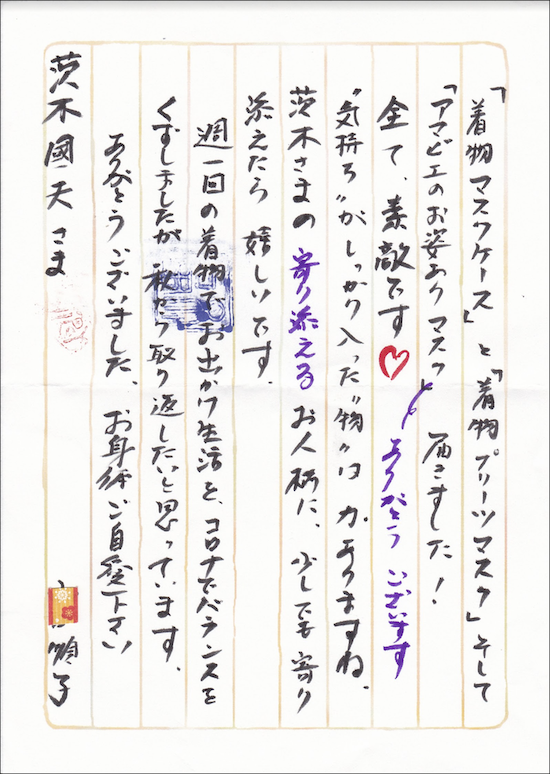 「着物マスクケース」と「着物プリーツマスク」そして
「アマビエのお姿ありマスク」届きました！
全て、素敵です♡ ありがとうございます
"気持ち"がしっかり入った"物"は力ありますね。
茨木さまの寄り添えるお人柄に、少しでも寄り
添えたら嬉しいです。
週一回の着物でお出かけ生活を、コロナでバランスを
くずしましたが秋から取り返したいと思っています。
ありがとうございました、お身体ご自愛下さい
順子
茨木國夫さま